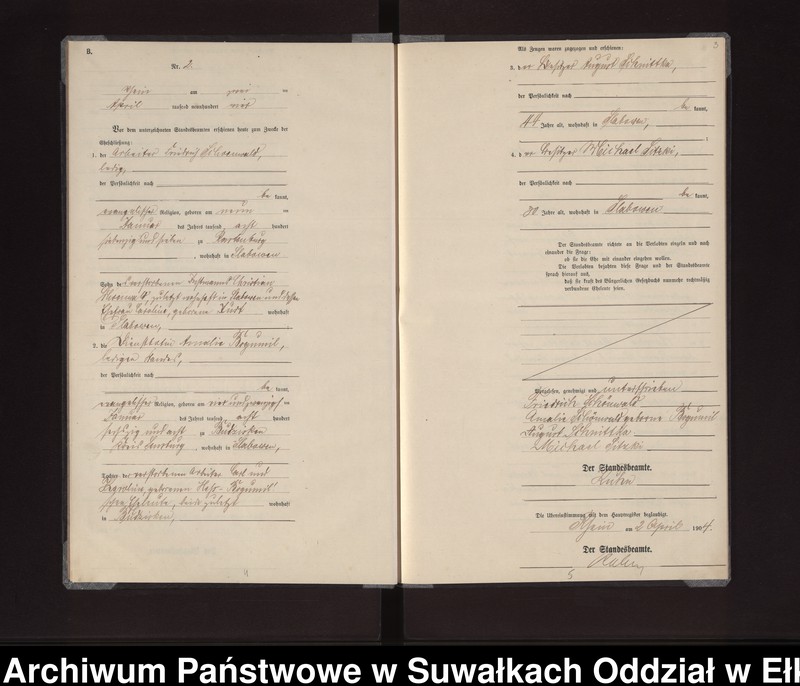 B.
Nr. 2.
Rhein am zwei ten
April tausend neunhundert vier
Vor dem unterzeichneten Standesbeamten erschienen heute zum Zwecke der
Eheschließung:
1. der Arbeiter Friedrich Schoenwald,
ledig,
der Persönlichkeit nach
be kannt,
evangelischer Religion, geboren am neun ten
Januar des Jahres tausend acht hundert
siebenzig und sieben zu Rastenburg
, wohnhaft in Slabowen
Sohn des verstorbenen Christian
zuletzt wohnhaft in Slabowen und dessen
Ehefrau Caroline, geborene wohnhaft
in Slabowen,
2. die Amalie Bogumil,
ledigen Standes,
der Persönlichkeit nach
be kannt,
evangelischer Religion, geboren am vier und zwanzigsten
Januar des Jahres tausend acht hundert
sechzig und acht zu
Kreis Sensburg, wohnhaft in Slabowen,
Tochter der verstorbenen Arbeiter Carl und
geborenen Bogumil
schen Eheleute, beide zuletzt wohnhaft
in
4
3
Als Zeugen waren zugezogen und erschienen:
3. der Besitzer August Schnittka,
der Persönlichkeit nach
be kannt,
44 Jahre alt, wohnhaft in Slabowen,
4. der Besitzer Michael Sitzki,
der Persönlichkeit nach
be kannt,
30 Jahre alt, wohnhaft in Slabowen
Der Standesbeamte richtete an die Verlobten einzeln und nach
einander die Frage:
ob sie die Ehe mit einander eingehen wollen.
Die Verlobten bejahten diese Frage und der Standesbeamte
sprach hierauf aus,
daß sie kraft des Bürgerlichen Gesetzbuchs nunmehr rechtmäßig
verbundene Eheleute seien.
Vorgelesen, genehmigt und unterschrieben
Friedrich Schönwald
Amalie Schönwald geborne Bogumil
August Schnittka
Michael Sitzki
Der Standesbeamte.
Die Übereinstimmung mit dem Hauptregister beglaubigt.
Rhein am 2 April 1904.
Der Standesbeamte.
5
Archiwum Państwowe w Suwałkach Oddział w Ełk